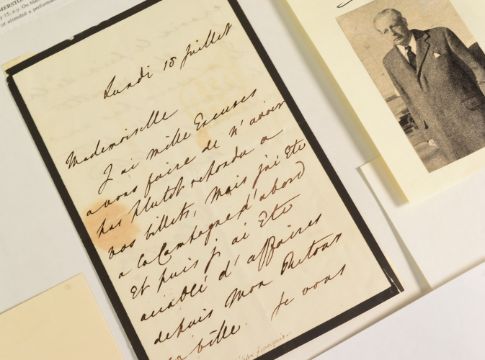 Lundi 18 Juillet
Mademoiselle
J'ai mille Excuses
a vous faire de n'avoir
pas plutot repondu a
vos billets, mais j'ai Ete
a la Campagne d'abord
Et puis j'ai Ete
accablé d'affaires
depuis mon Retour
ville. Je vous